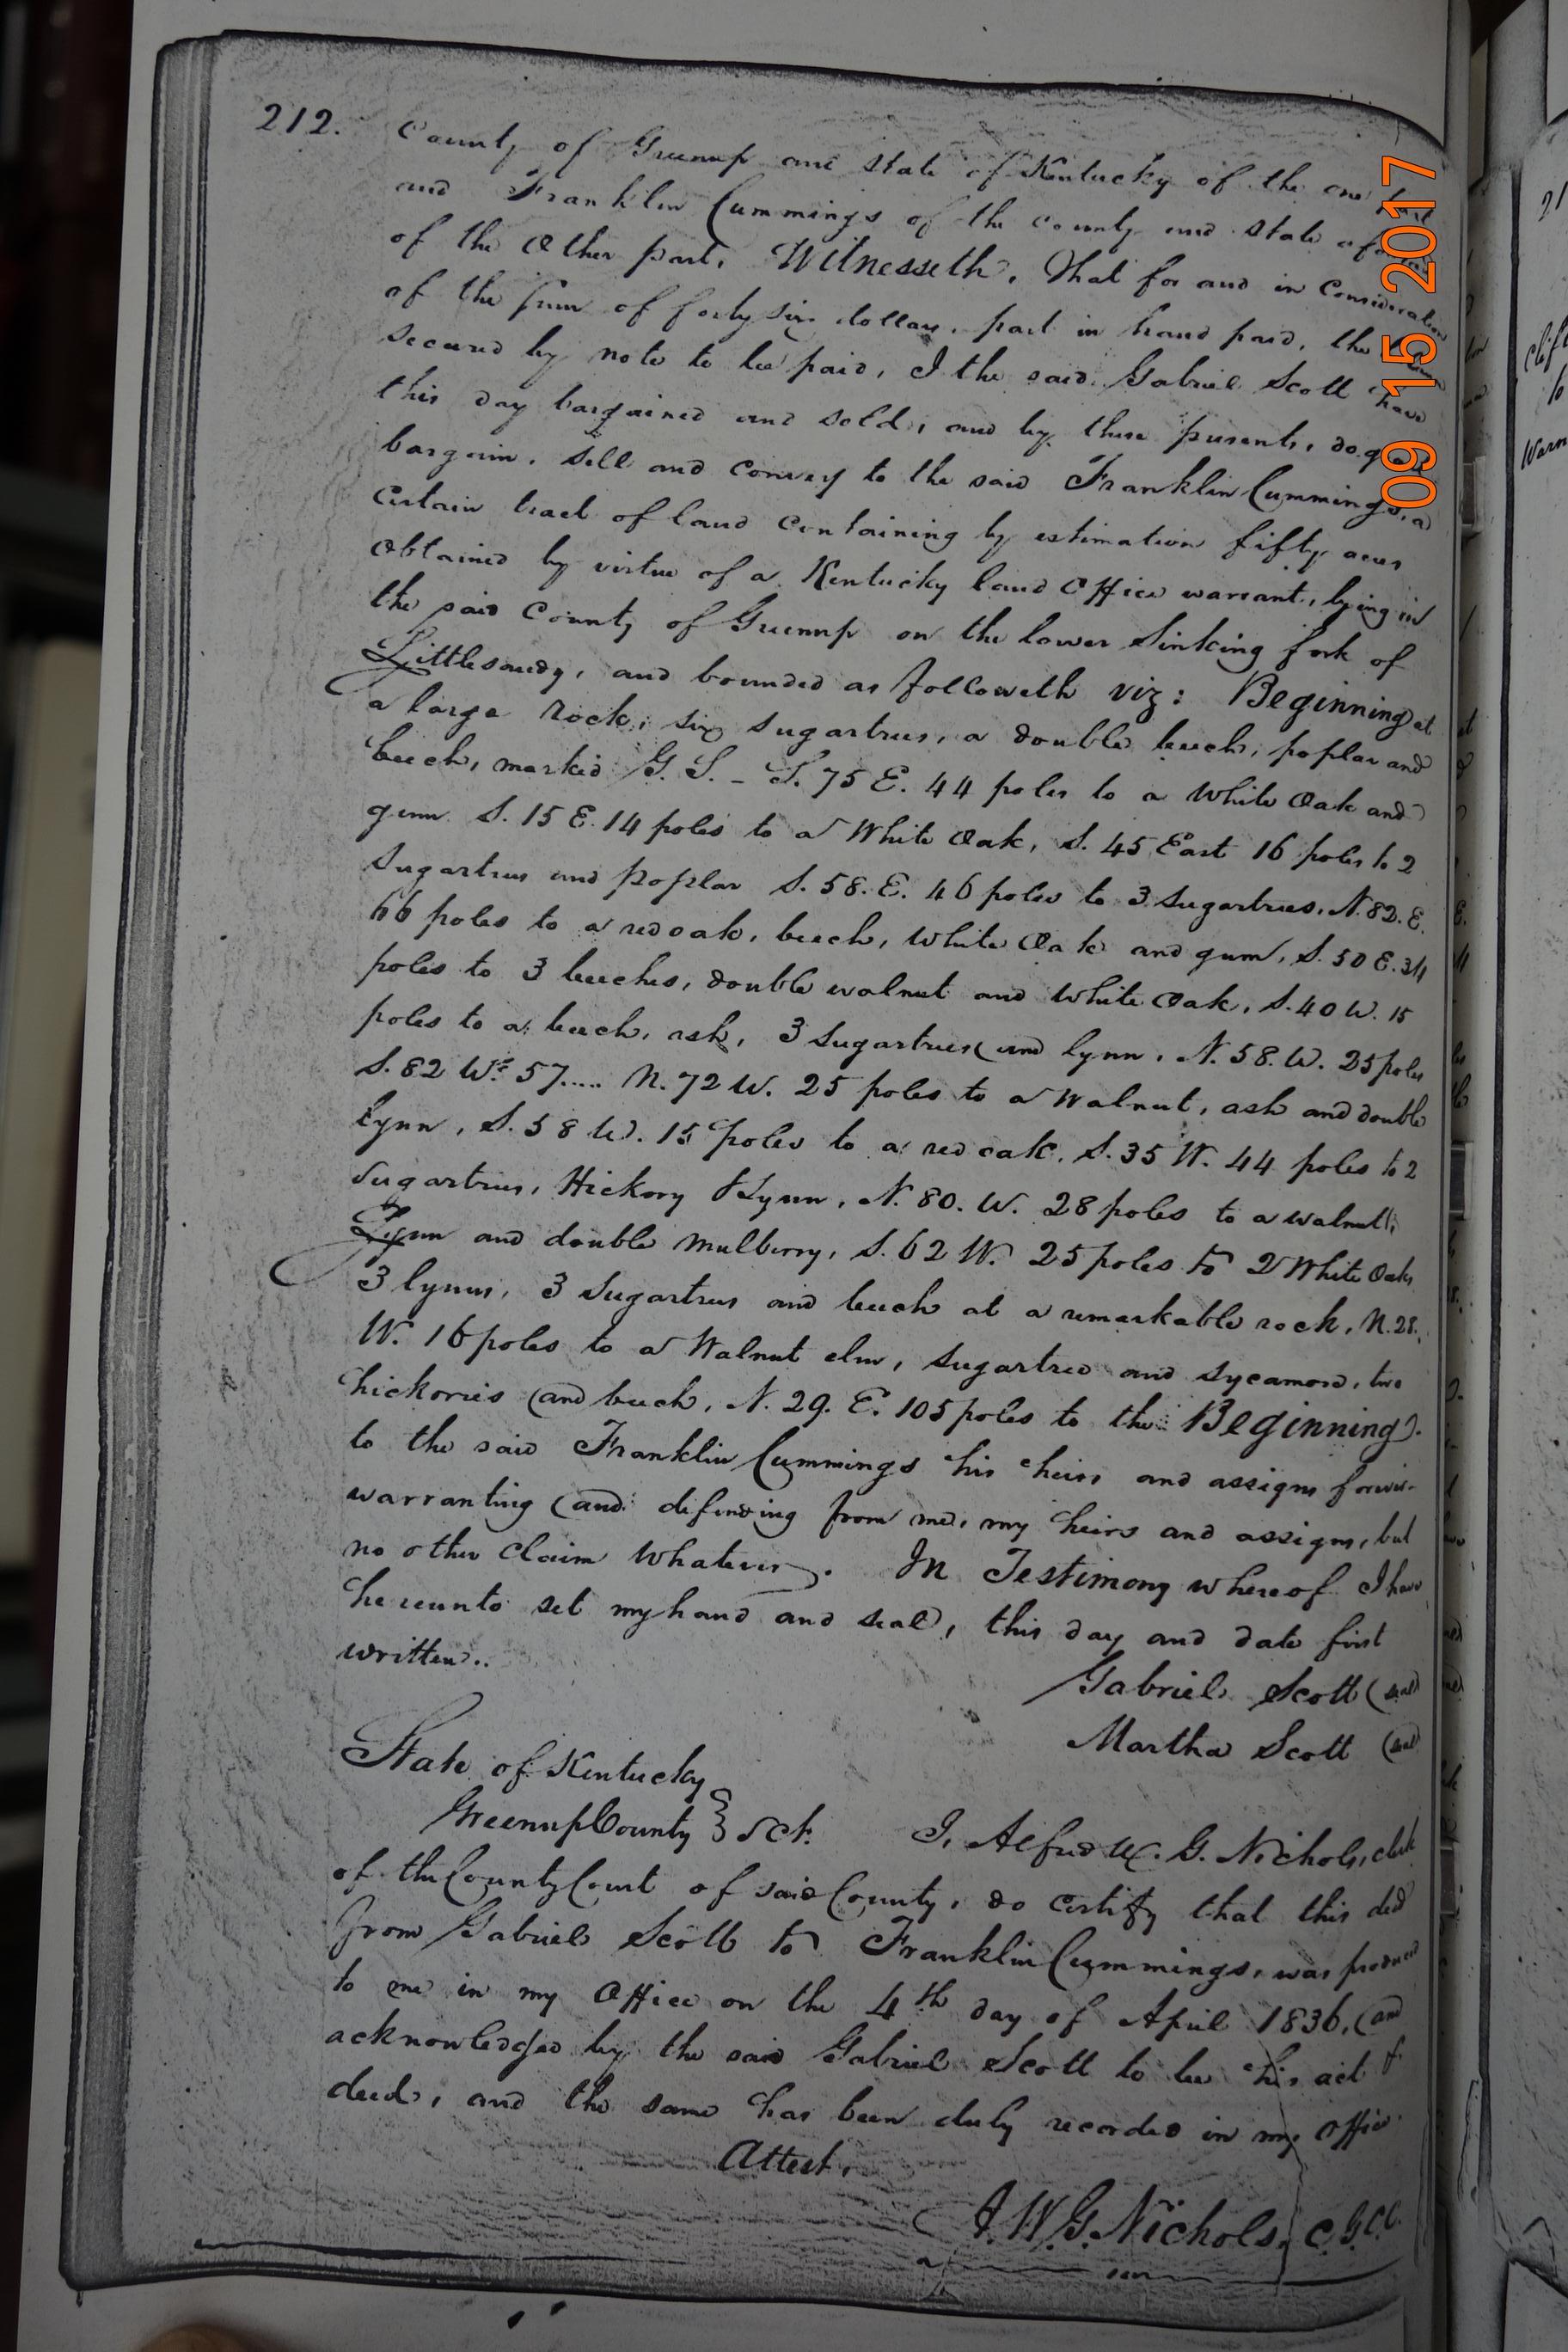 212.
County of Greenup and state of Kentucky of the one part
and Franklin Cummings of the county and state
of the Other part, Witnesseth, That for and in Consideration
of the sum of forty six dollars, part in hand paid, the
secured by note to be paid, I the said Gabriel Scott have
this day bargained and sold, and by these presents, do
bargain, sell and convey to the said Franklin Cummings, a
certain tract of land containing by estimation fifty acres
Obtained by virtue of a Kentucky land Office warrant, lying in
the said County of Greenup on the lower Sinking fork of
Littlesandy, and bounded as followeth viz: Beginning at
a large Rock, six sugartrees, a double beech, poplar and
beech, marked G. S. - S. 75 E. 44 poles to a White Oak and
gum S. 15 E. 14 poles to a White Oak, S. 45 East 16 poles to 2
Sugartrees and poplar S. 58. E. 46 poles to 3 Sugartrees, N. 82. E.
66 poles to a red oak, beech, White Oak and gum, S. 50 E. 34
poles to 3 beeches, double walnut and White Oak, S. 40 W. 15
poles to a beech, ash, 3 Sugartrees and lynn, N. 58. W. 25 poles
S. 82 W. 57.... N. 72 W. 25 poles to a Walnut, ash and double
lynn, S. 58 W. 15 poles to a red oak, S. 35 W. 44 poles to 2
Sugartrees, Hickory & Lynn, N. 80. W. 28 poles to a walnut,
Lynn and double mulberry, S. 62 W. 25 poles to 2 White Oaks,
3 lynns, 3 Sugartrees and beech at a remarkable rock, N. 28.
W. 16 poles to a Walnut elm, sugartree and sycamore, two
hickories and beech, N. 29. E. 105 poles to the Beginning.
to the said Franklin Cummings his heirs and assigns forever
warranting and defending from me, my heirs and assigns, but
no other claim whatever. In Testimony whereof I have
hereunto set my hand and seal, this day and date first
written..
Gabriel Scott (seal)
Martha Scott (seal)
State of Kentucky
Greenup County } Sct. I, Alfred W. G. Nichols, clerk
of the County Court of said County, do certify that this deed
from Gabriel Scott to Franklin Cummings, was produced
to me in my Office on the 4th day of April 1836, and
acknowledged by the said Gabriel Scott to be his act &
deed, and the same has been duly recorded in my Office
Attest,
A. W. G. Nichols, C.G.C.C.
09 15 2017